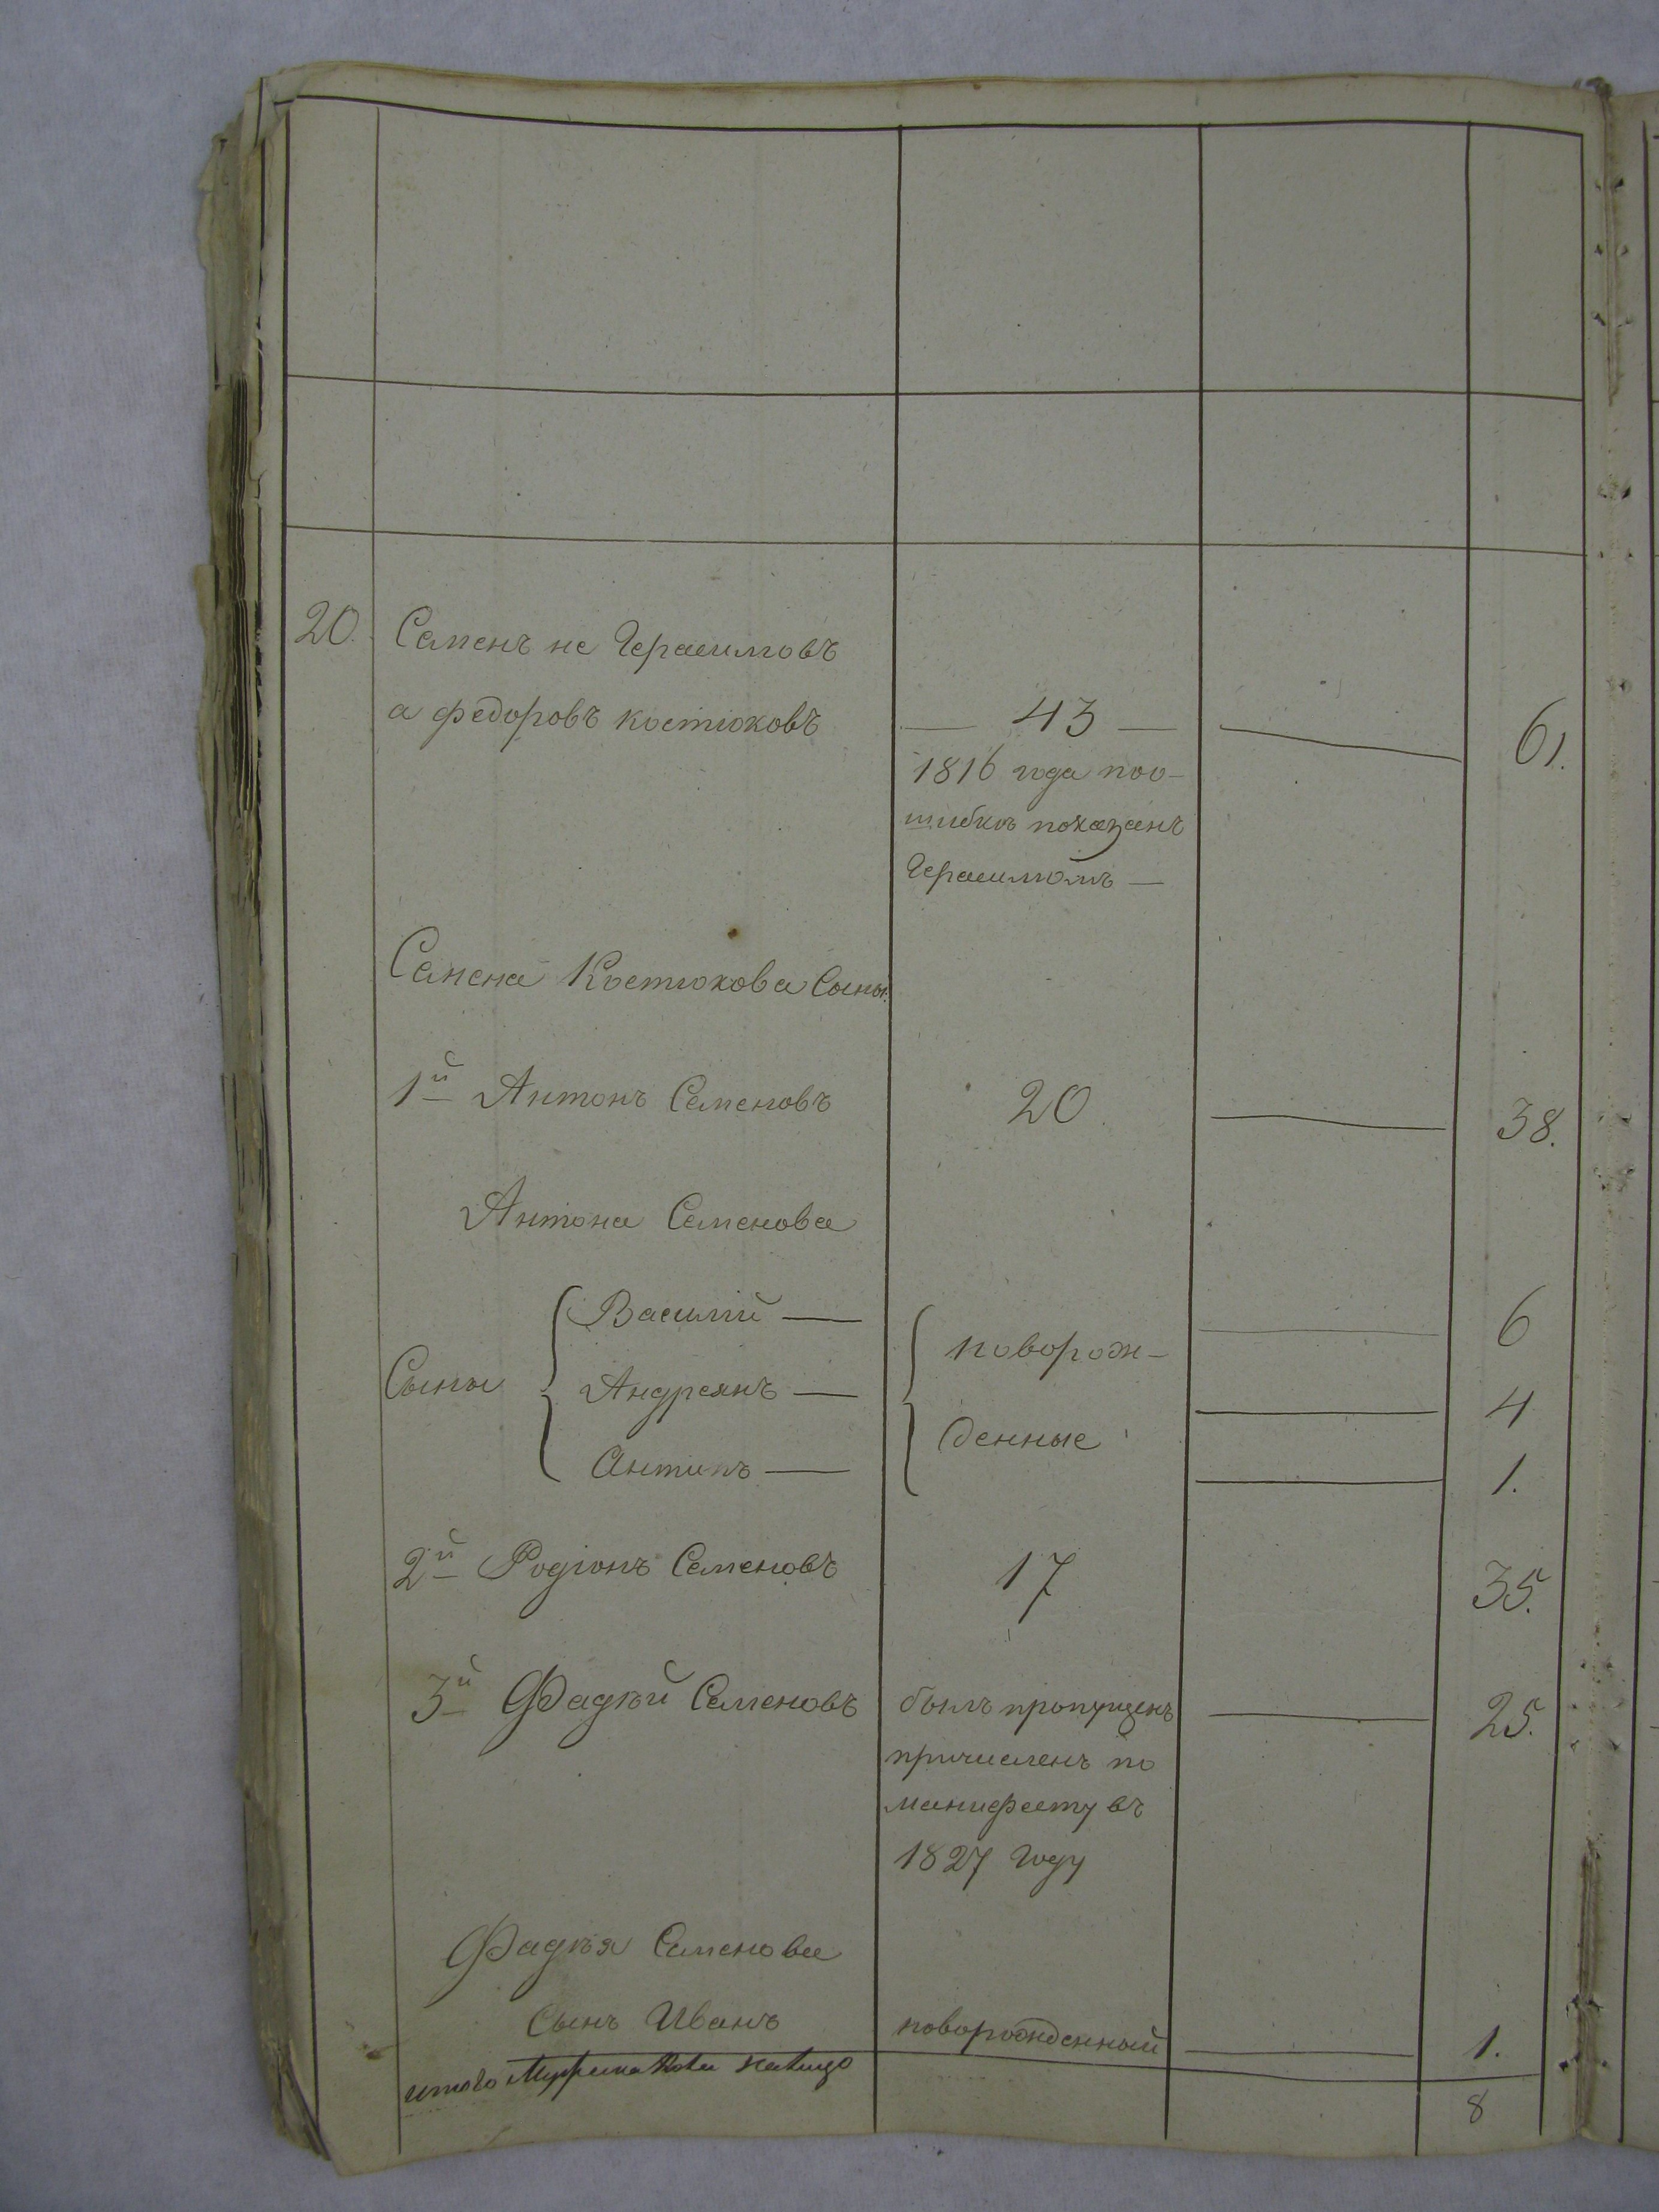 20. Семенъ не Герасимовъ
а федоровъ костюковъ — 43 — — 61.
1816 года поо-
шибкѣ показанъ
Герасимомъ —
Семена Костюкова Сыны:
1й Антонъ Семеновъ 20 — 38.
Антона Семенова
Сыны
Василій — — 6
Андреянъ — — 4
Антипъ — — 1.
новорож-
денные
2й Родіонъ Семеновъ 17 35.
3й Фадѣй Семеновъ былъ пропущенъ — 25.
причисленъ по
манифесту въ
1827 году
Фадѣя Семенова
сынъ Иванъ новорожденный — 1.
итого мужеска пола налицо 8